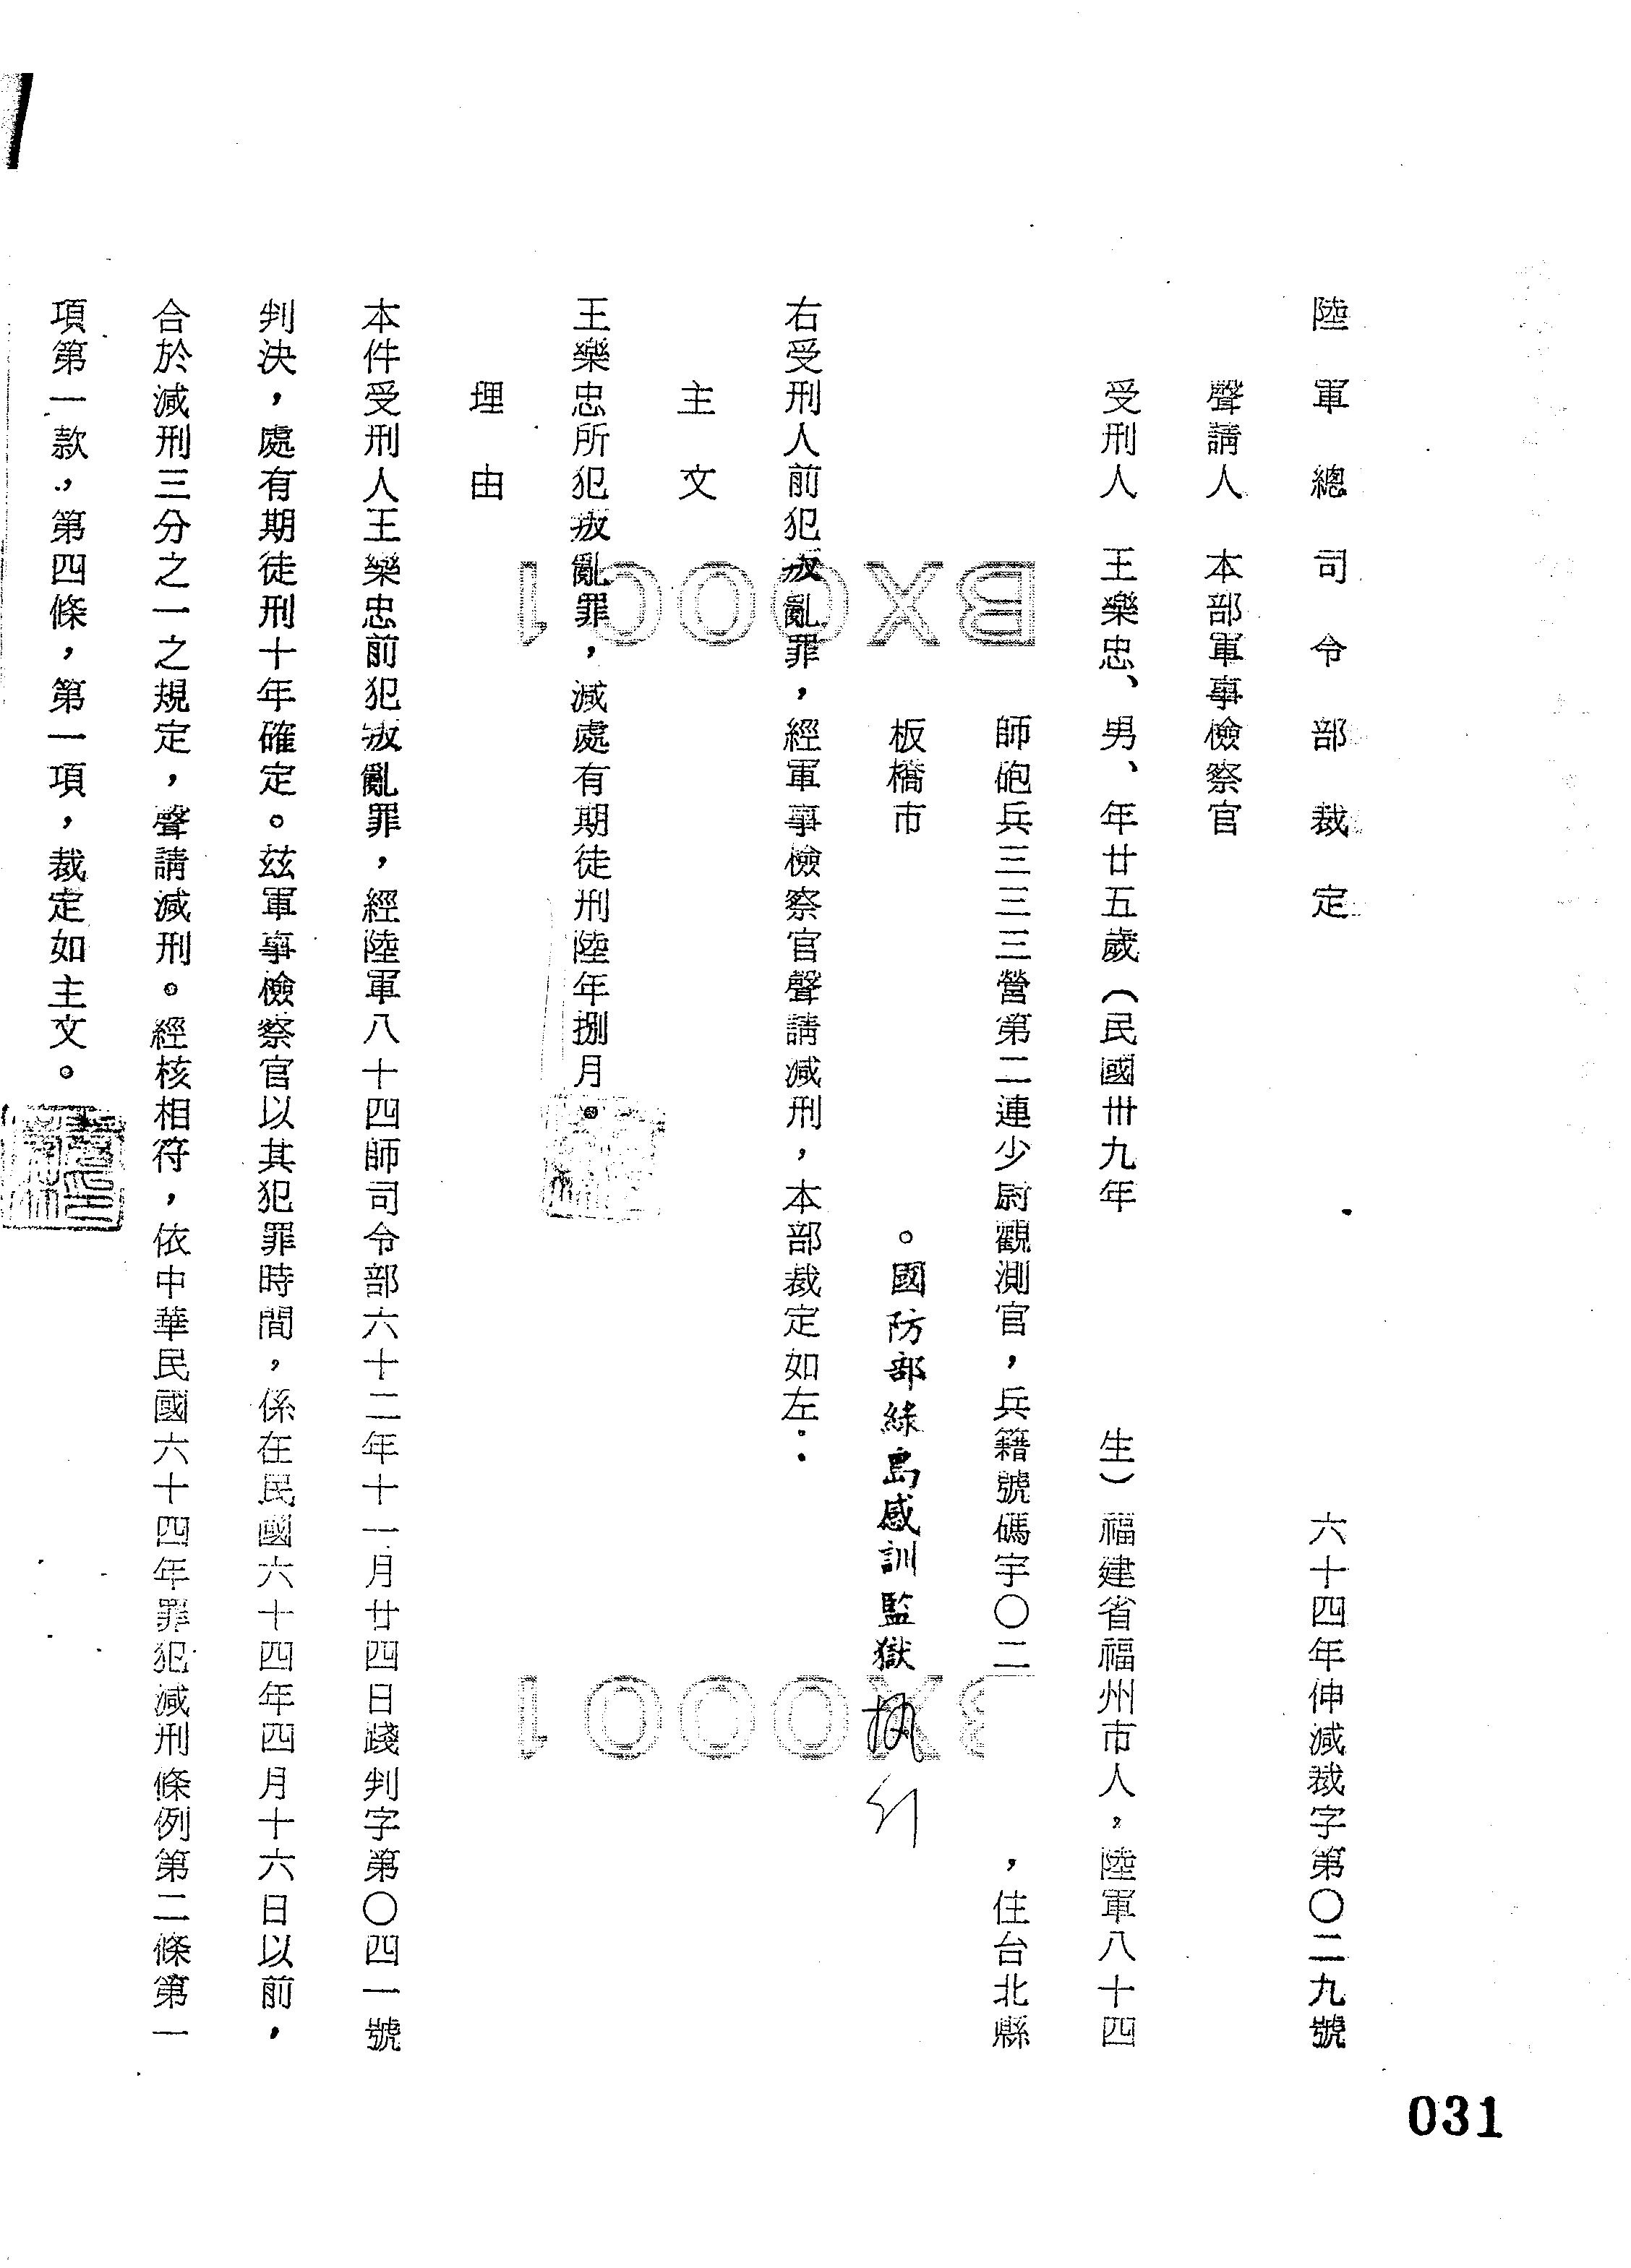 陸軍總司令部裁定 六十四年伸減裁字第〇二九號
聲請人 本部軍事檢察官
受刑人 王樂忠、男、年廿五歲（民國卅九年 生）福建省福州市人，陸軍八十四
師砲兵三三三營第二連少尉觀測官，兵籍號碼宇〇二 ，住台北縣
板橋市 。國防部綠島感訓監獄執行
右受刑人前犯叛亂罪，經軍事檢察官聲請減刑，本部裁定如左：
主文
王樂忠所犯叛亂罪，減處有期徒刑陸年捌月。
理由
本件受刑人王樂忠前犯叛亂罪，經陸軍八十四師司令部六十二年十一月廿四日踐判字第〇四一號
判決，處有期徒刑十年確定。茲軍事檢察官以其犯罪時間，係在民國六十四年四月十六日以前，
合於減刑三分之一之規定，聲請減刑。經核相符，依中華民國六十四年罪犯減刑條例第二條第一
項第一款，第四條，第一項，裁定如主文。
BX0001
BX0001
031